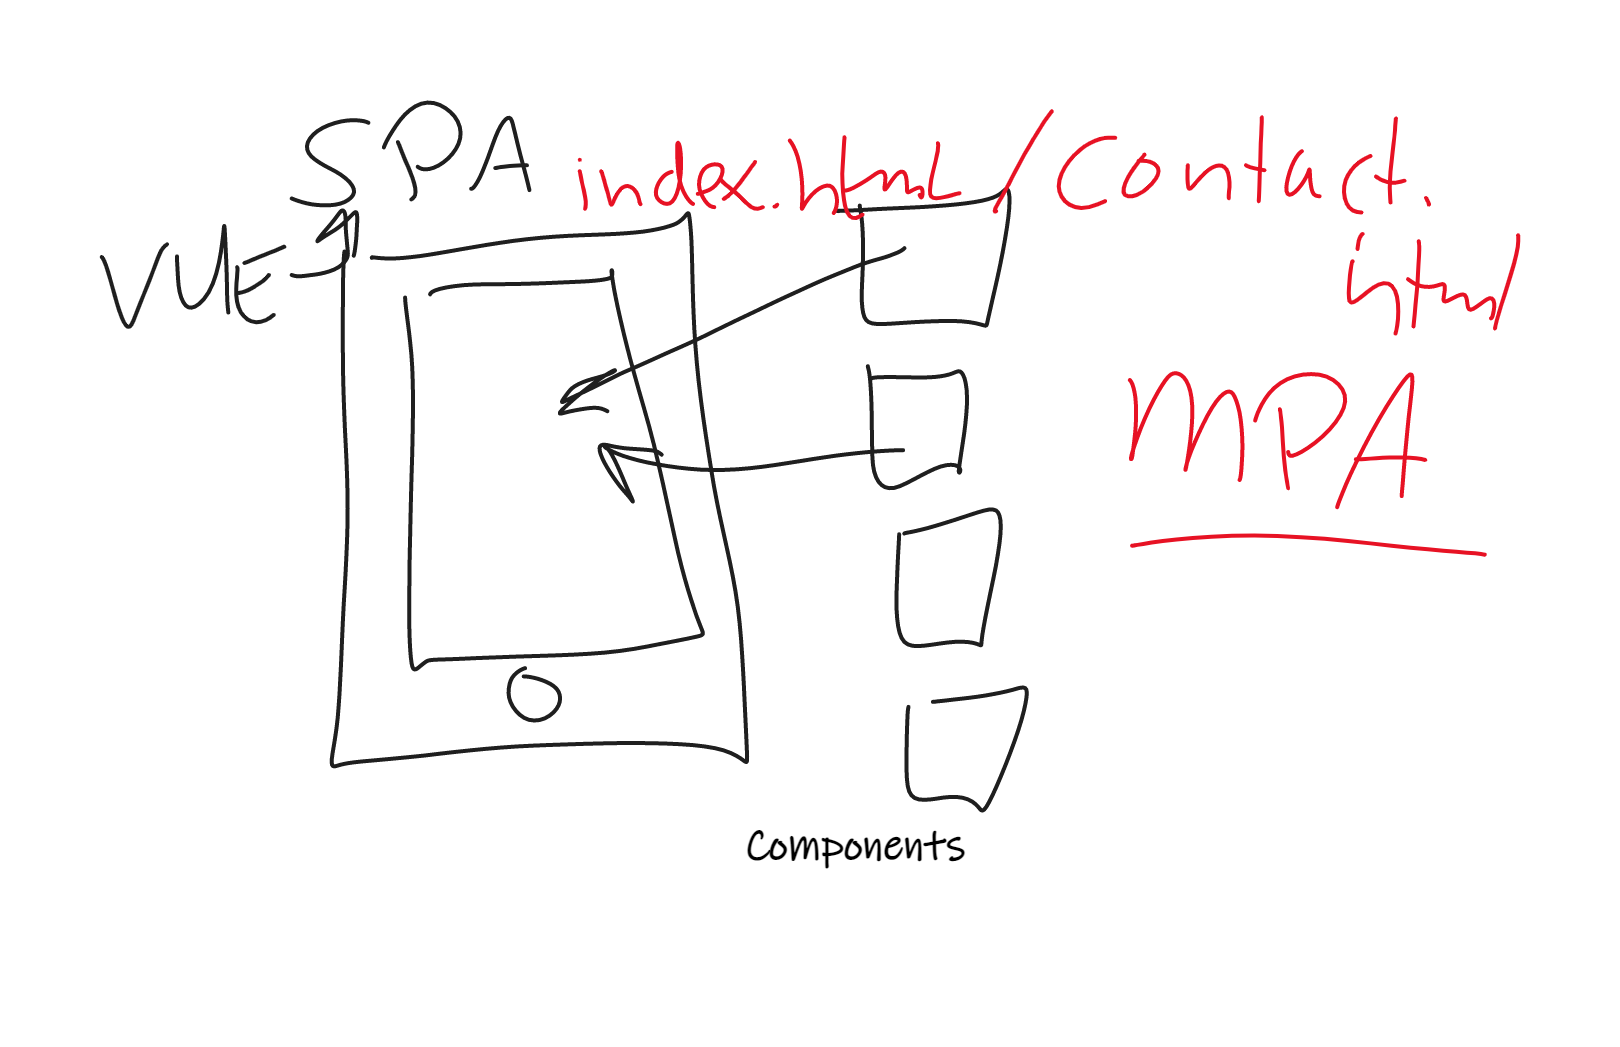 SPA index.html / Contact.
html
VUE
MPA
Components